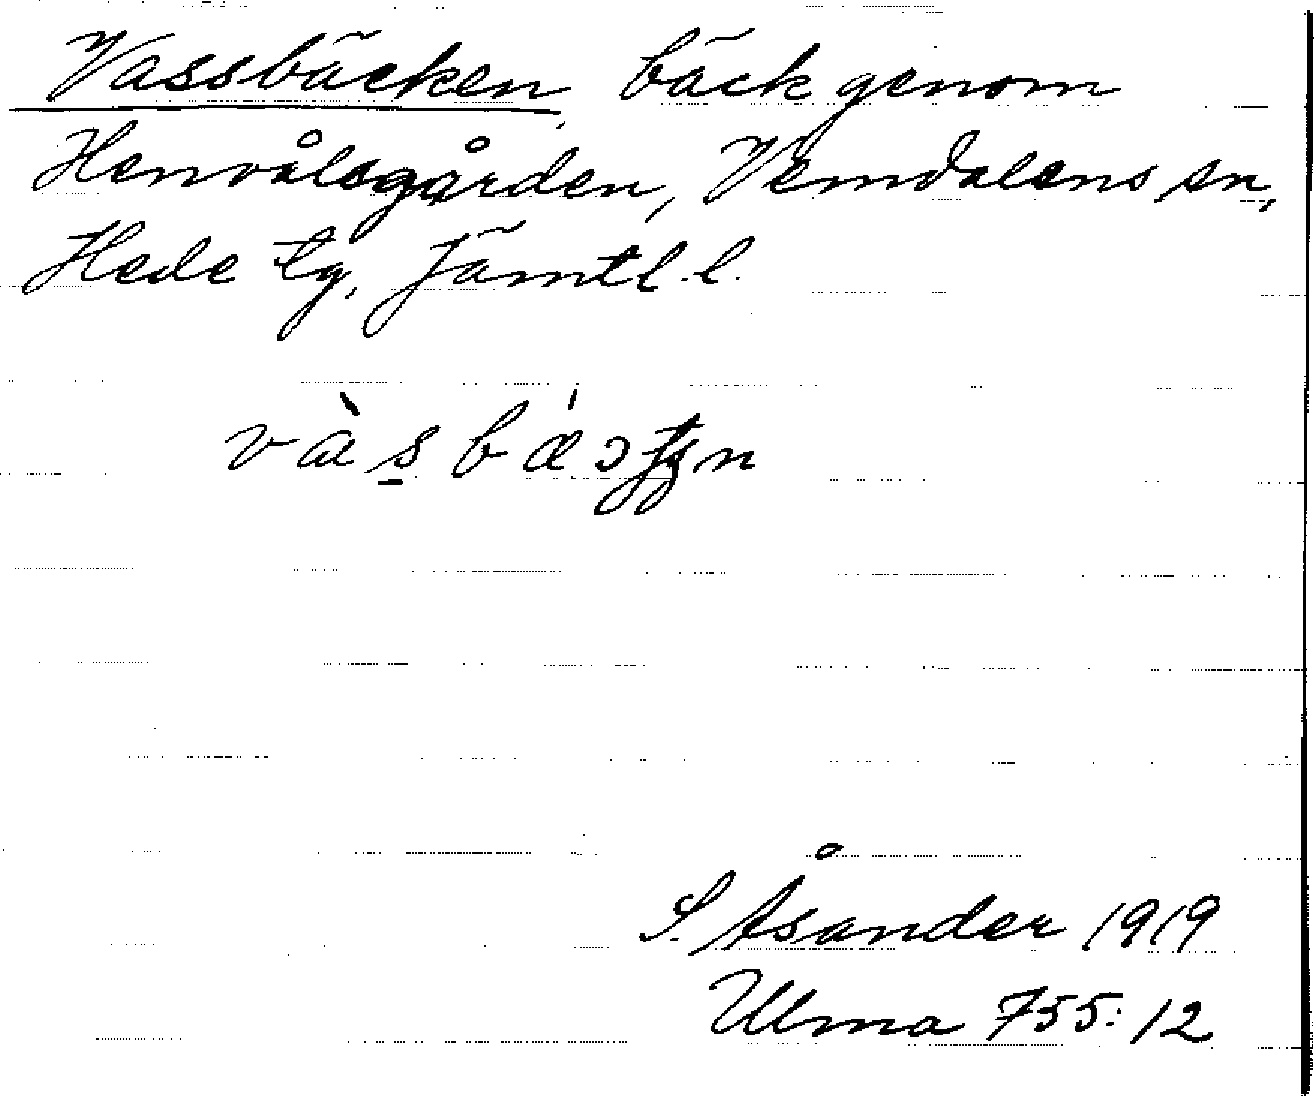 Vassbäcken, bäck genom
Henvålsgården, Vemdalens sn,
Hede tg, Jämtl. l.
S. Åsander 1919
Ulma 755:12